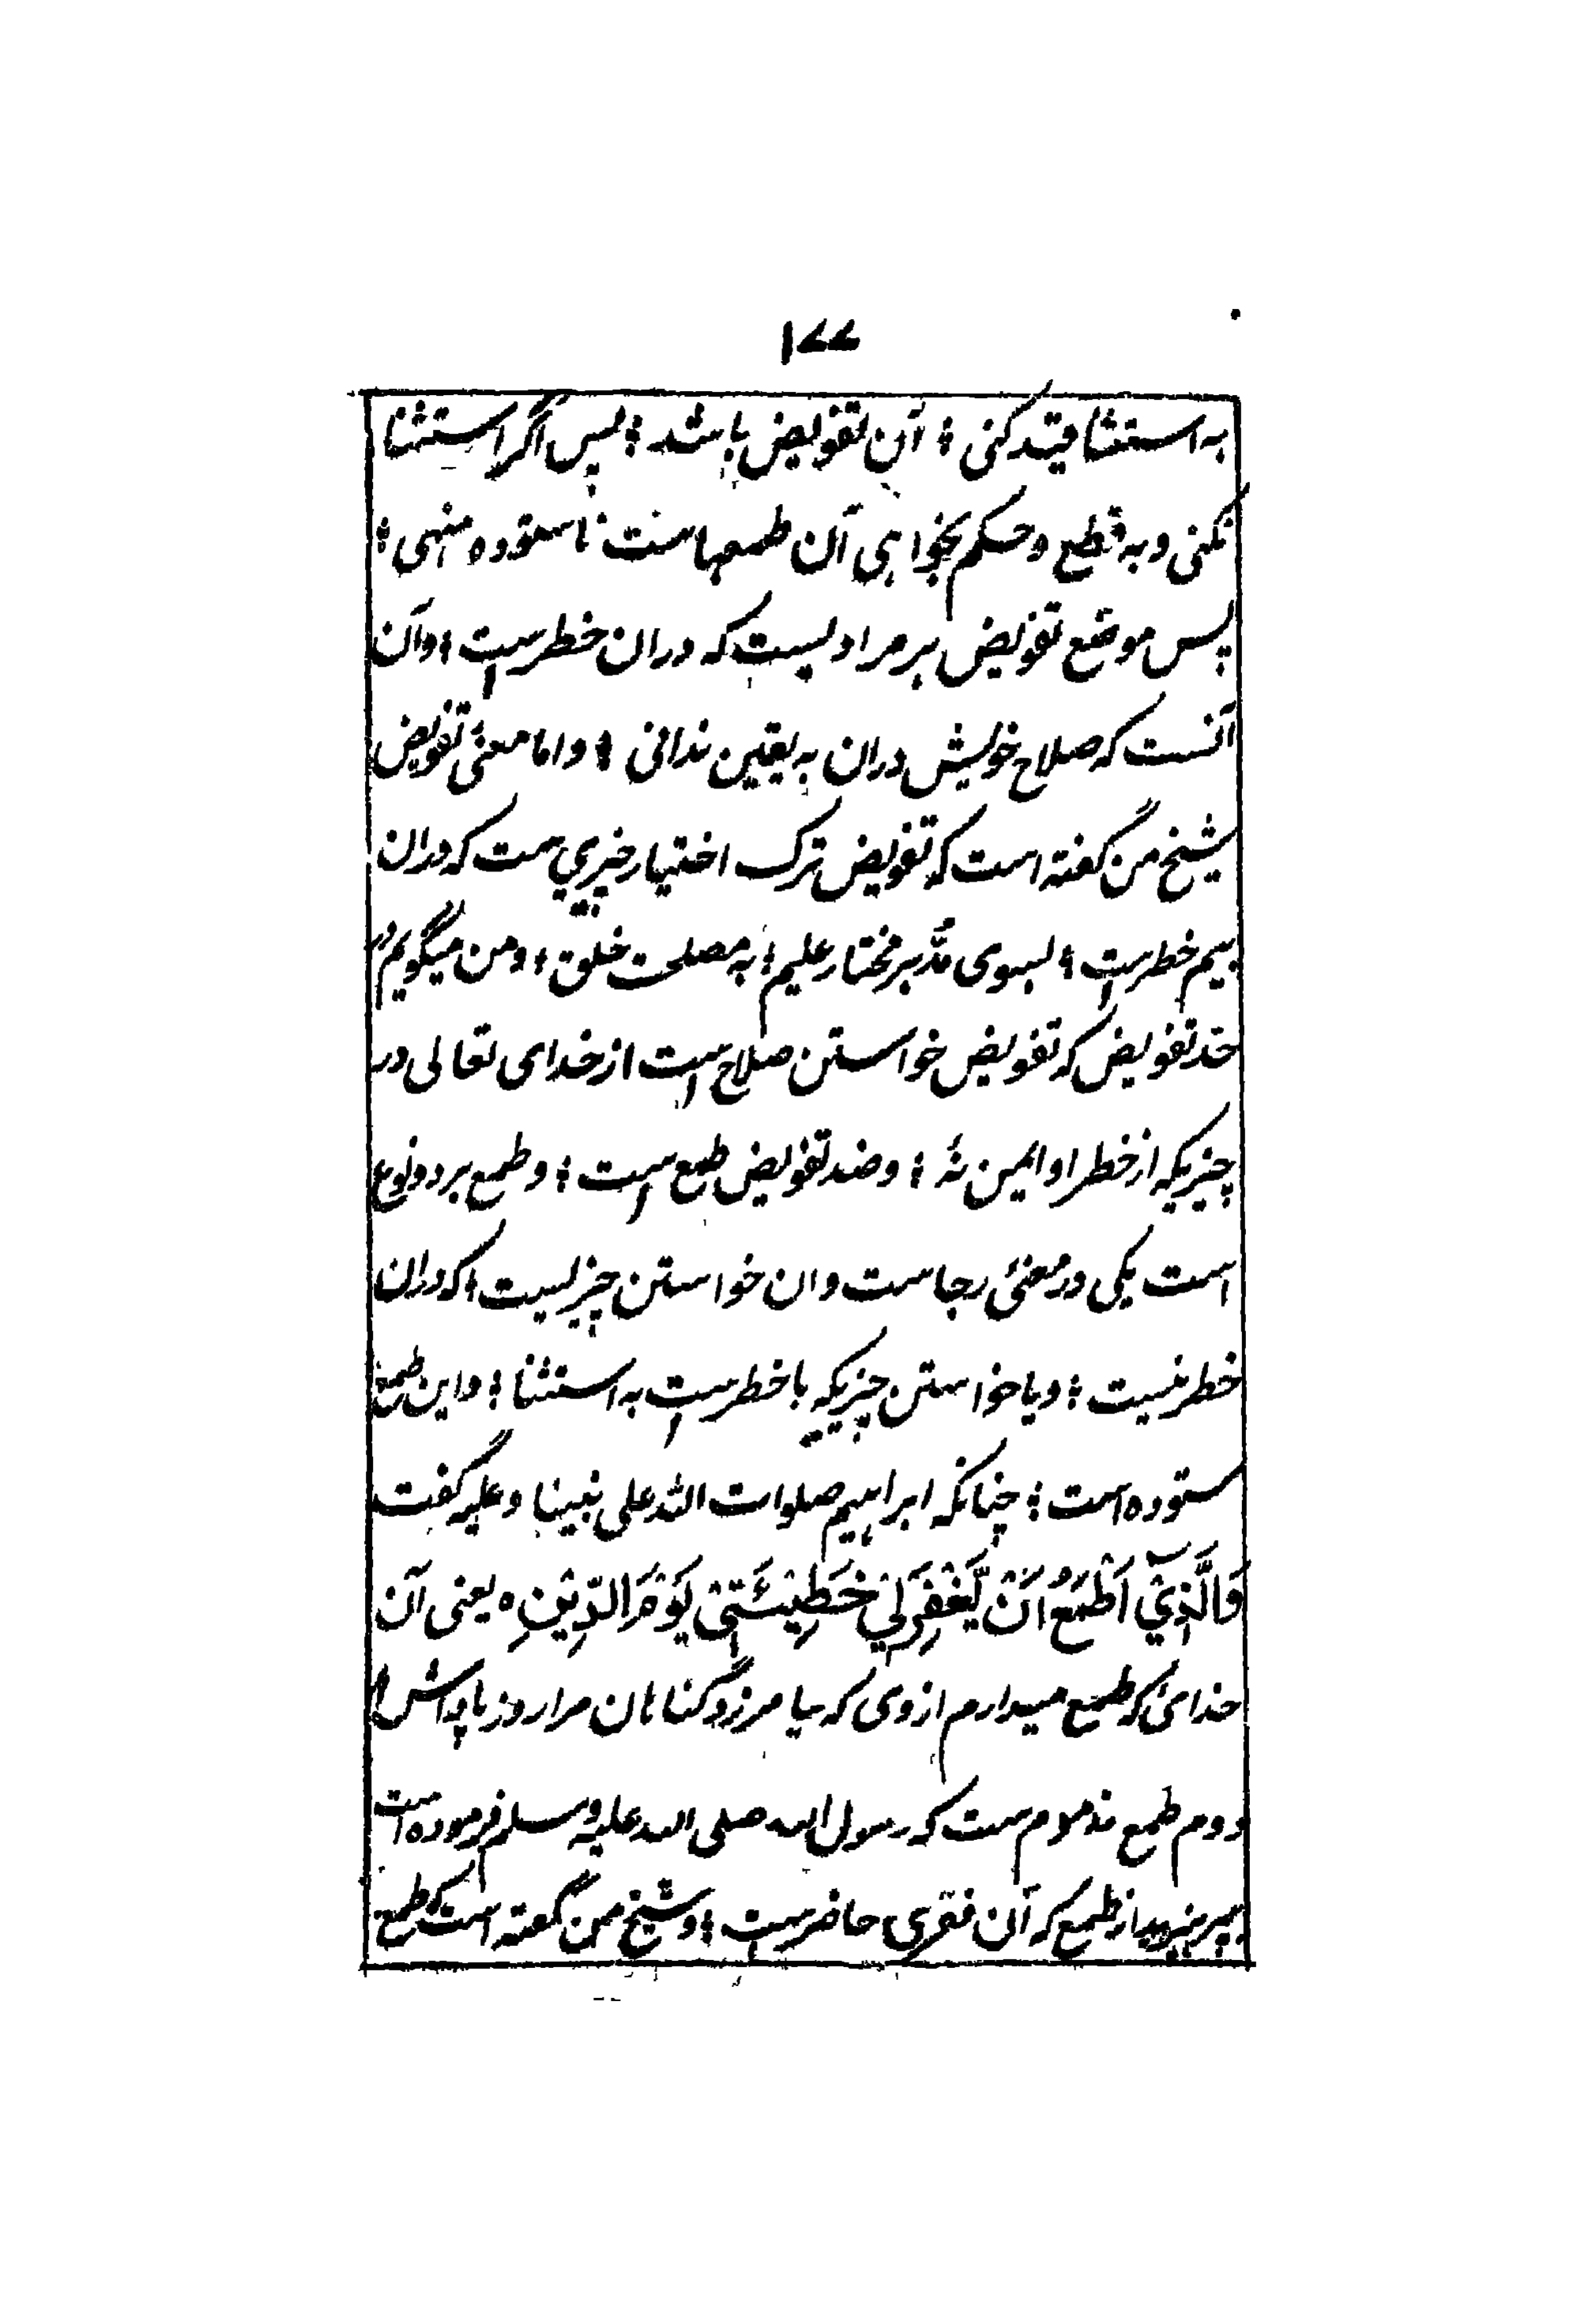 ۱۷۷
به استثنا قید کنی ؛ آن تفویض باشد ؛ پس اگر استثنا
نکنی و به قطع و حکم بخواهی آن طمعهاست ناستوده منهی ؛
پس موضع تفویض هر مرادیست که دران خطرست ؛ وآن
آنست که صلاح خویش دران به یقین ندانی ؛ واما معنیٔ تفویض
شیخ من گفته است که تفویض ترک اختیار چیزیست که دران
بیم خطرست ؛ بسوی مدّبر مختار علیم ؛ به مصلحت خلق ؛ ومن میگویم در
حد تفویض که تفویض خواستن صلاح است از خدای تعالی در
چیزیکه از خطر او ایمن نهٔ ؛ وضد تفویض طمع است ؛ وطمع بر دو نوع
است یکی در معنیٔ رجاست وان خواستن چیزیست ؛ که دران
خطر نیست ؛ ویا خواستن چیزیکه با خطرست به استثنا ؛ واین طمع
ستوده است ؛ چنانکه ابراهیم صلوات الله علی نبینا وعلیه گفت
وَالَّذِيْٓ اَطْمَعُ اَنْ يَّغْفِرَ لِيْ خَطِيْئَتِيْ يَوْمَ الدِّيْنِ ٥ یعنی آن
خدائی که طمع میدارم از وی که بیامرزد گناهان مرا روز پاداش ؛
دوم طمع مذموم ست که رسول الله صلی الله علیه وسلم فرموده است
بپرهیزید از طمع که آن فقری حاضرست ؛ وشیخ من گفته است که طمع